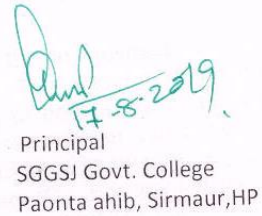 17-8-2019.
Principal
SGGSJ Govt. College
Paonta ahib, Sirmaur,HP